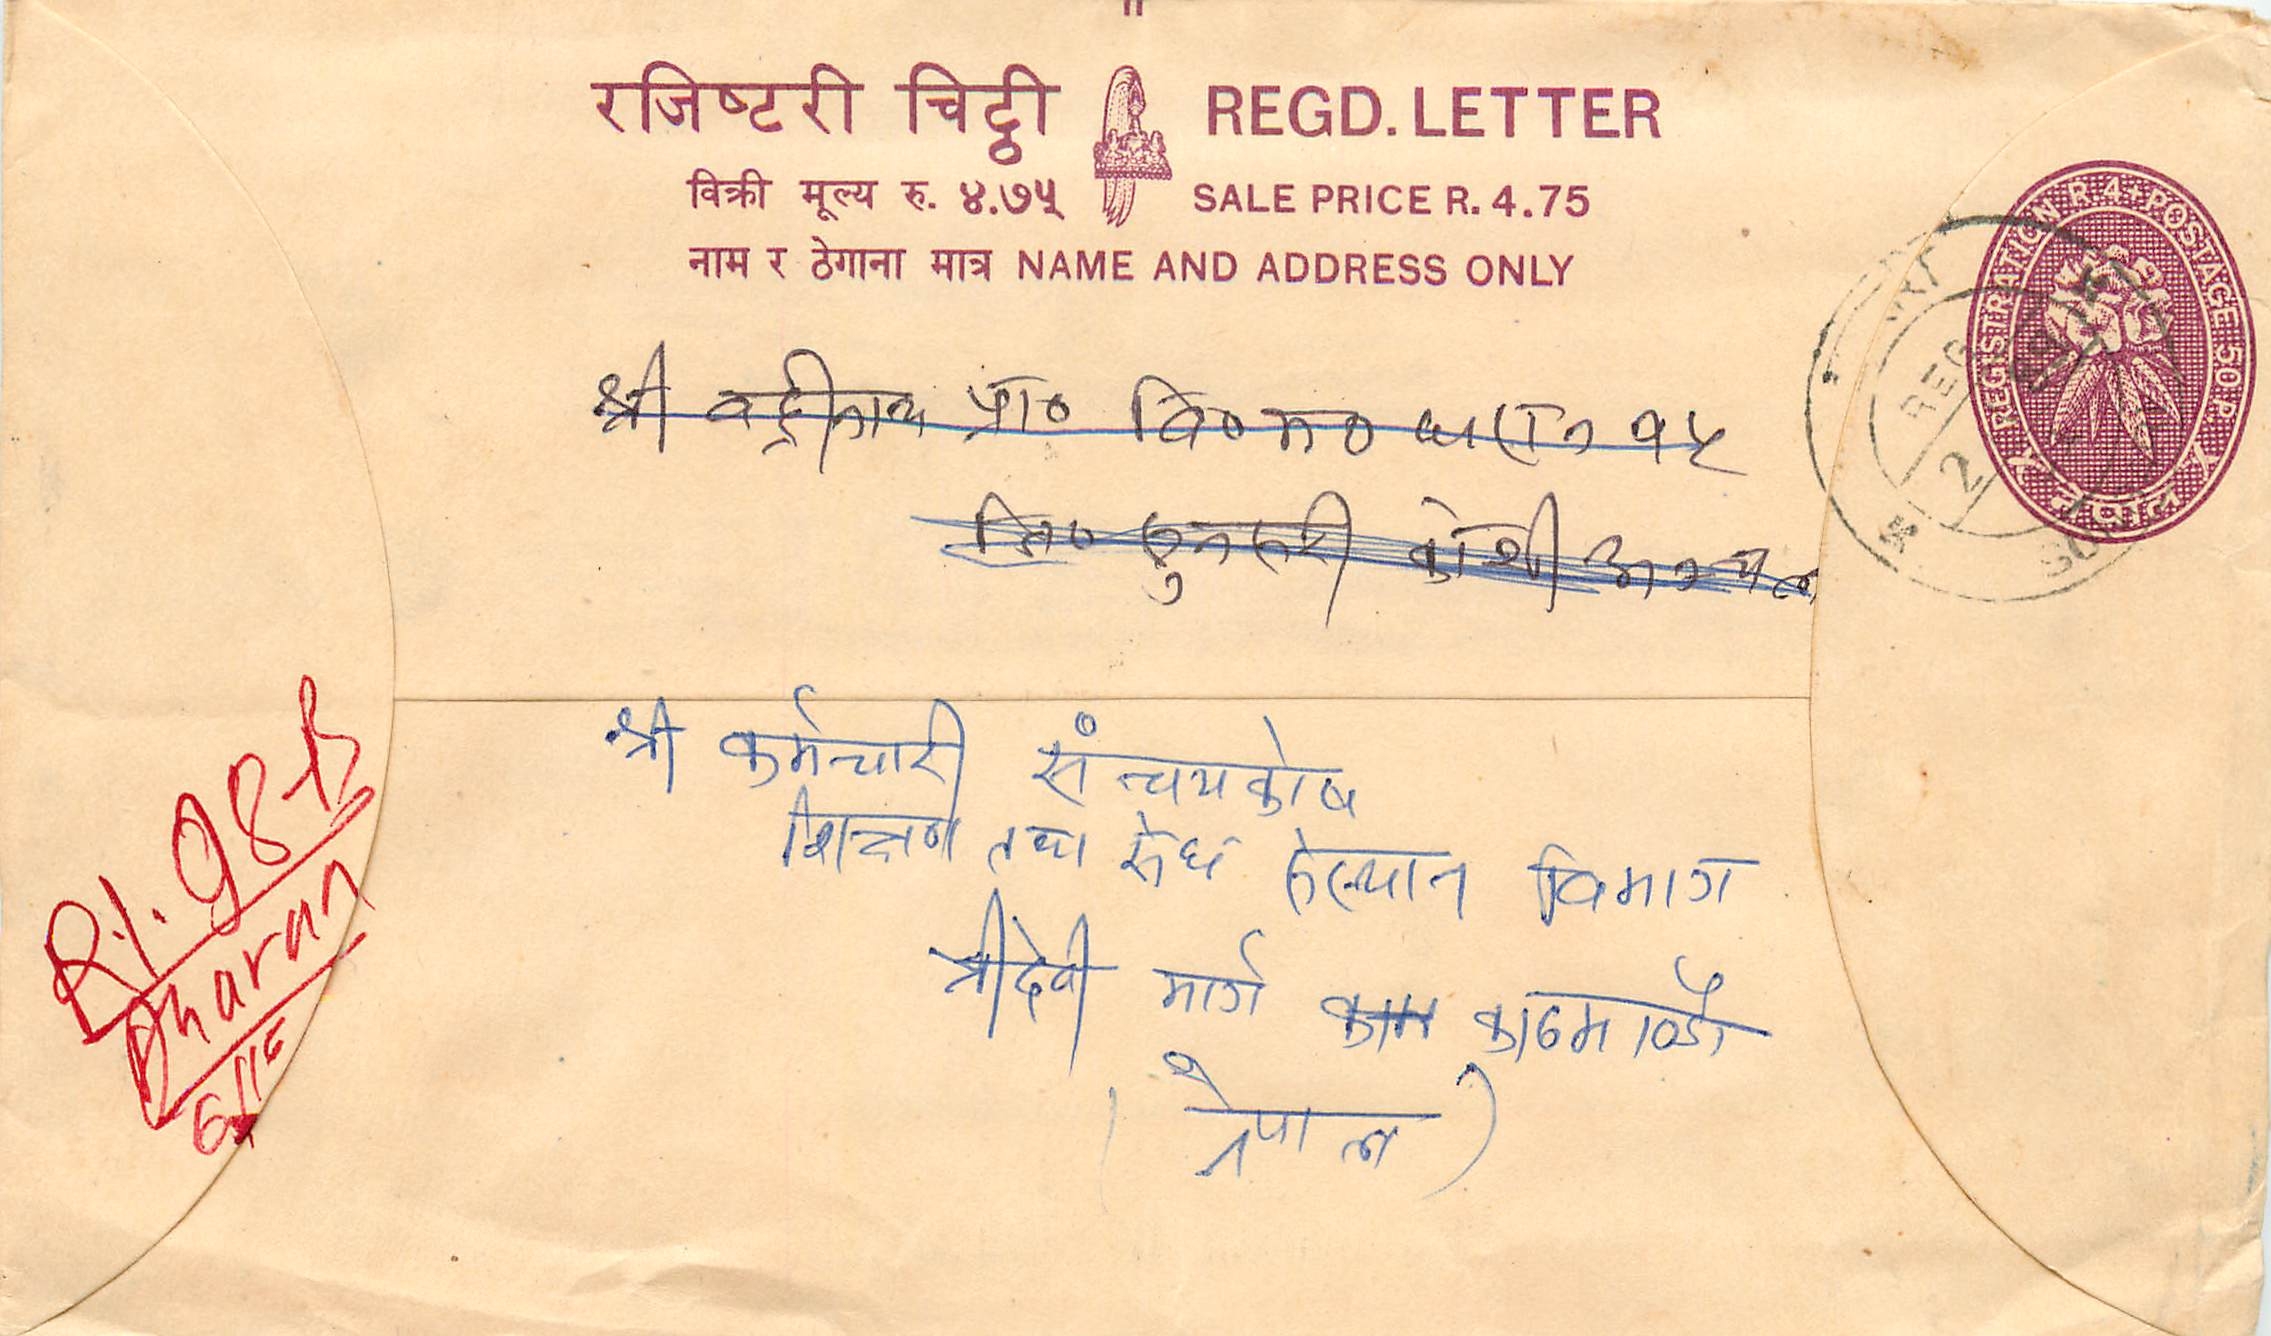 रजिष्टरी चिट्ठी REGD. LETTER
विक्री मूल्य रु. ४.७५ SALE PRICE R. 4.75
नाम र ठेगाना मात्र NAME AND ADDRESS ONLY
REGISTRATION R.4+POSTAGE 50 P.
नेपाल
REG
2
श्री वद्रीनाथ प्रा० वि० म० धरान १५
जि० सुनसरी कोशी अन्चल
श्री कर्मचारी संन्चयकोष
शिक्षण तथा विभाग
श्रीदेवी मार्ग काठमाण्डौ
(नेपाल)
R/. 98
Dharan